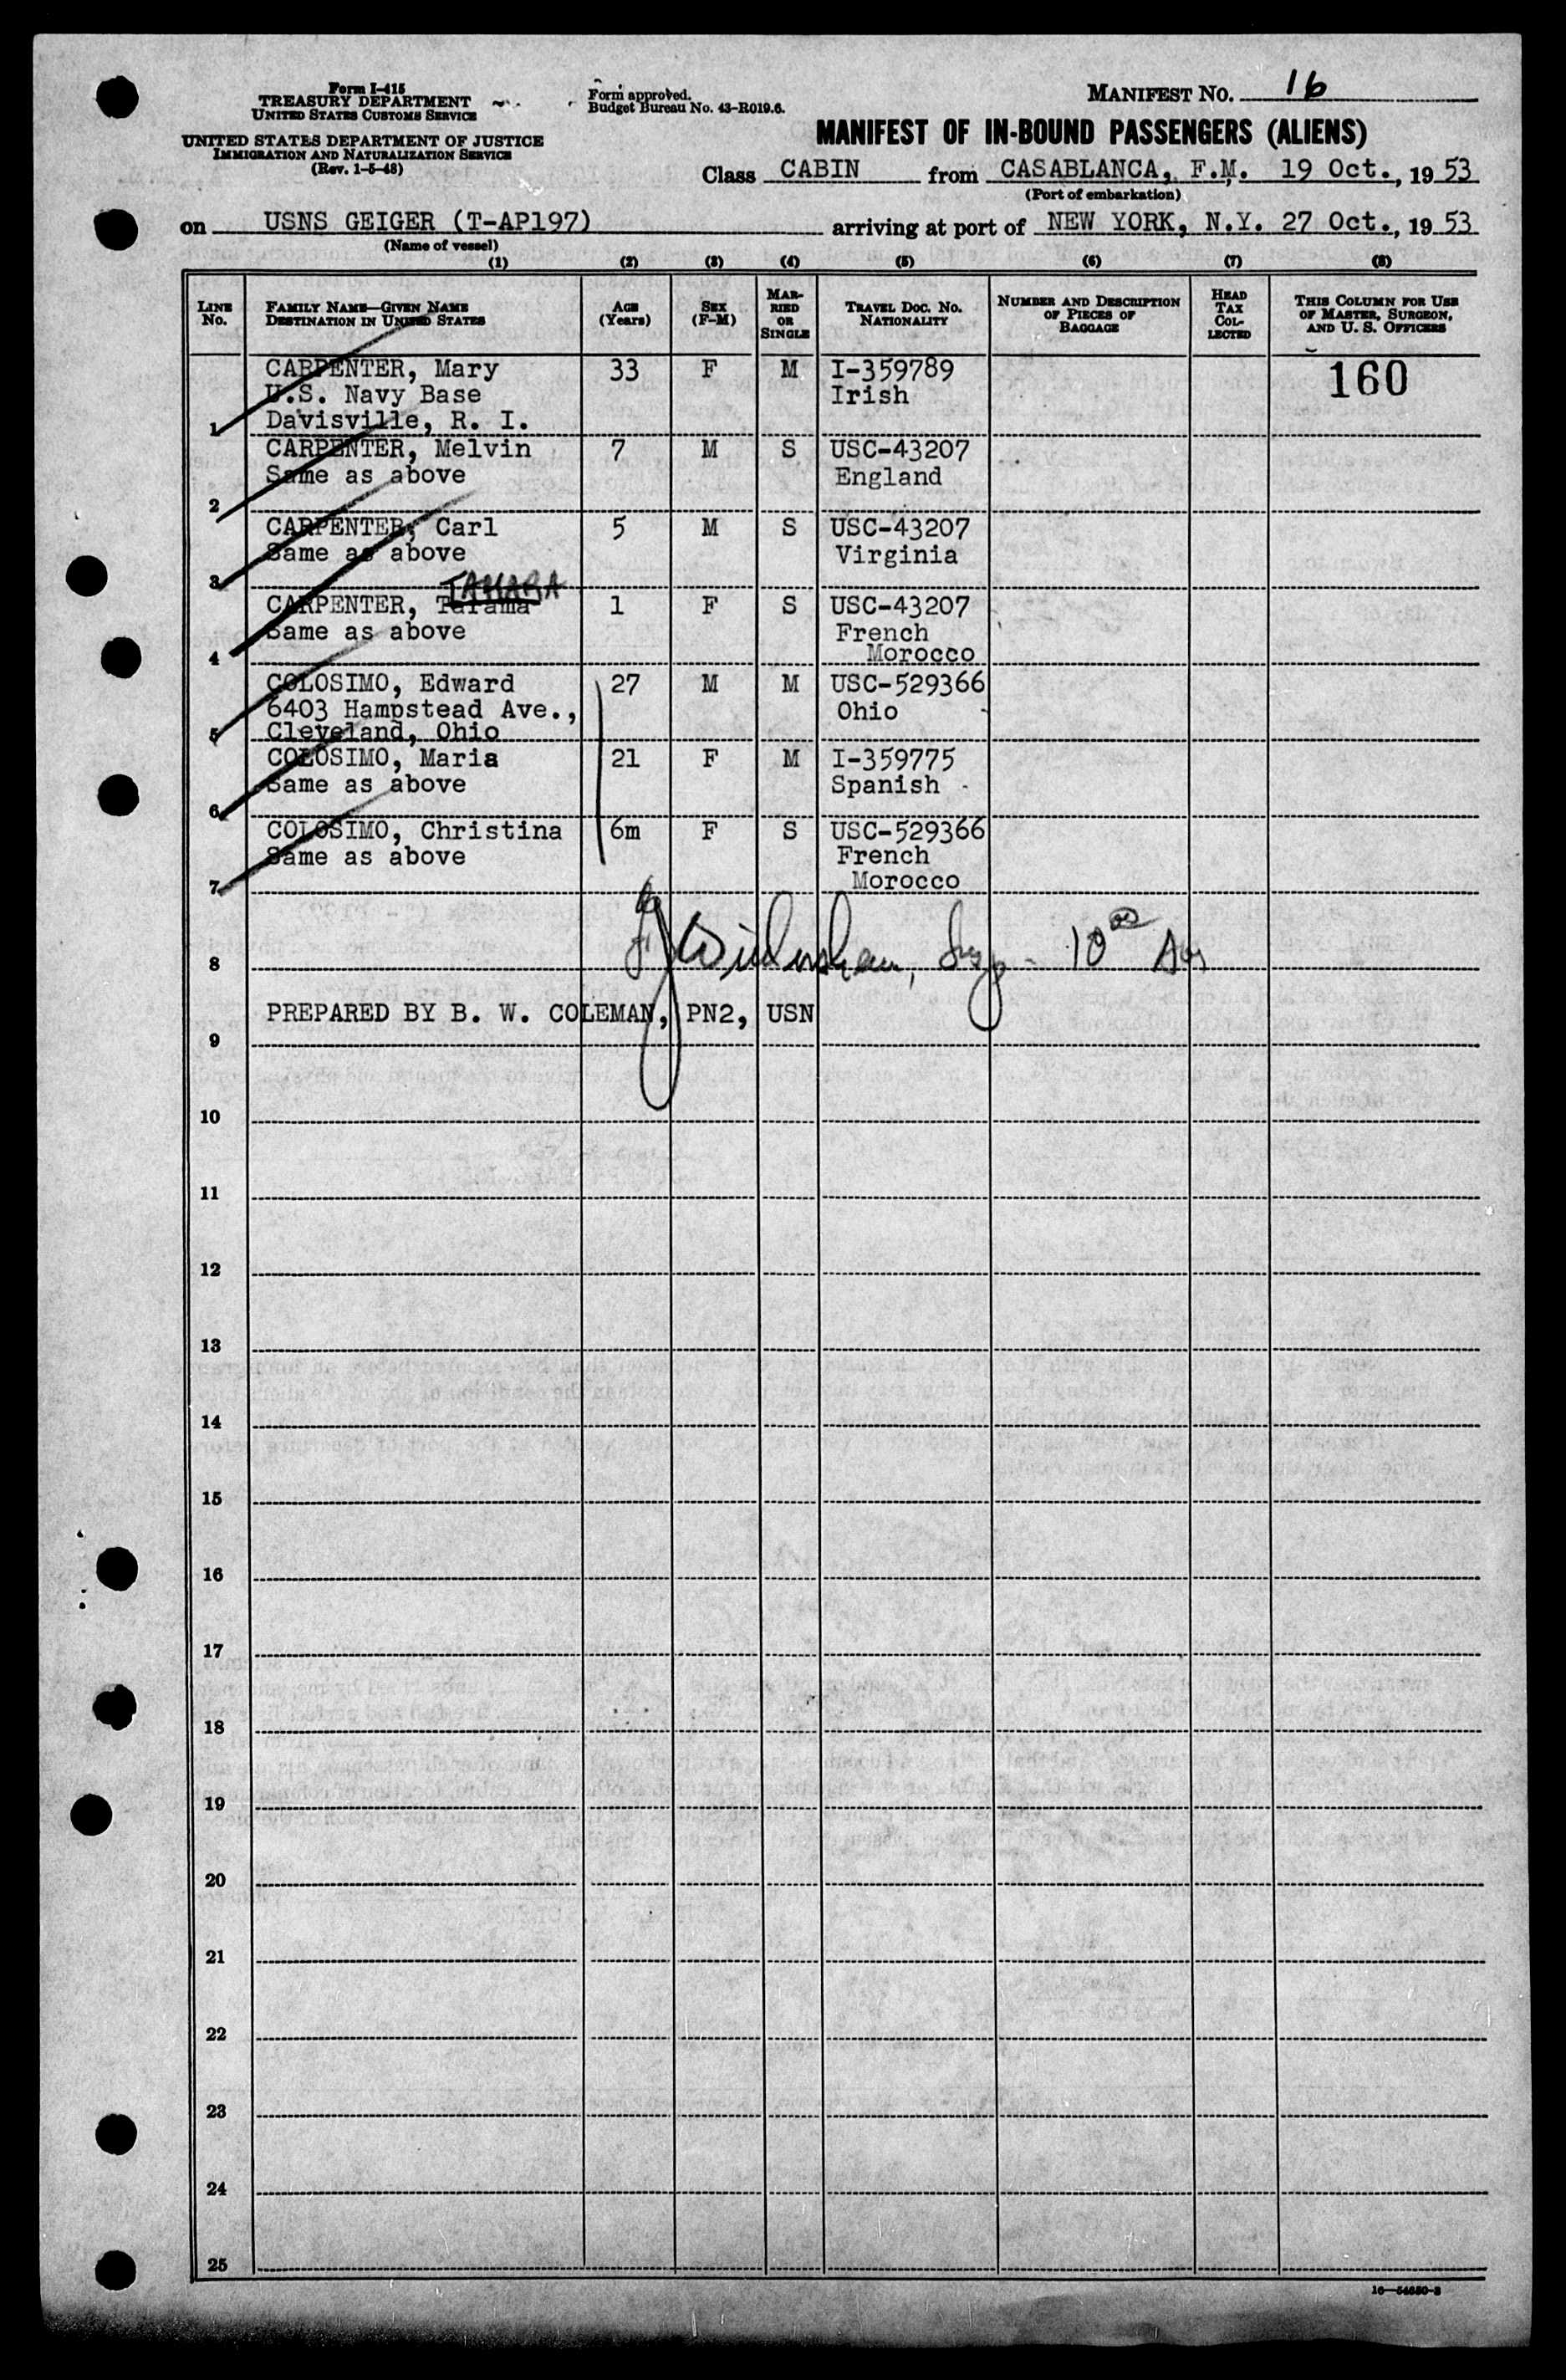 Form I-415
TREASURY DEPARTMENT
UNITED STATES CUSTOMS SERVICE
UNITED STATES DEPARTMENT OF JUSTICE
IMMIGRATION AND NATURALIZATION SERVICE
(Rev. 1-5-48)
Form approved.
Budget Bureau No. 43-R019.6.
MANIFEST NO. 16
MANIFEST OF IN-BOUND PASSENGERS (ALIENS)
Class CABIN from CASABLANCA, F.M. 19 Oct., 19 53
(Port of embarkation)
on USNS GEIGER (T-AP197) arriving at port of NEW YORK, N.Y. 27 Oct., 19 53
(Name of vessel)
(1) (2) (3) (4) (5) (6) (7) (8)
LINE No. FAMILY NAME—GIVEN NAME DESTINATION IN UNITED STATES AGE (Years) SEX (F-M) MARRIED OR SINGLE TRAVEL DOC. NO. NATIONALITY NUMBER AND DESCRIPTION OF PIECES OF BAGGAGE HEAD TAX COLLECTED THIS COLUMN FOR USE OF MASTER, SURGEON, AND U. S. OFFICERS
CARPENTER, Mary 33 F M I-359789 160
U.S. Navy Base Irish
1 Davisville, R. I.
CARPENTER, Melvin 7 M S USC-43207
Same as above England
2
CARPENTER, Carl 5 M S USC-43207
Same as above Virginia
3
TAMARA
CARPENTER, Tarama 1 F S USC-43207
Same as above French
4 Morocco
COLOSIMO, Edward 27 M M USC-529366
6403 Hampstead Ave., Ohio
5 Cleveland, Ohio
COLOSIMO, Maria 21 F M I-359775
Same as above Spanish
6
COLOSIMO, Christina 6m F S USC-529366
Same as above French
7 Morocco
8 10 00
PREPARED BY B. W. COLEMAN, PN2, USN
9
10
11
12
13
14
15
16
17
18
19
20
21
22
23
24
25
16—54650-2